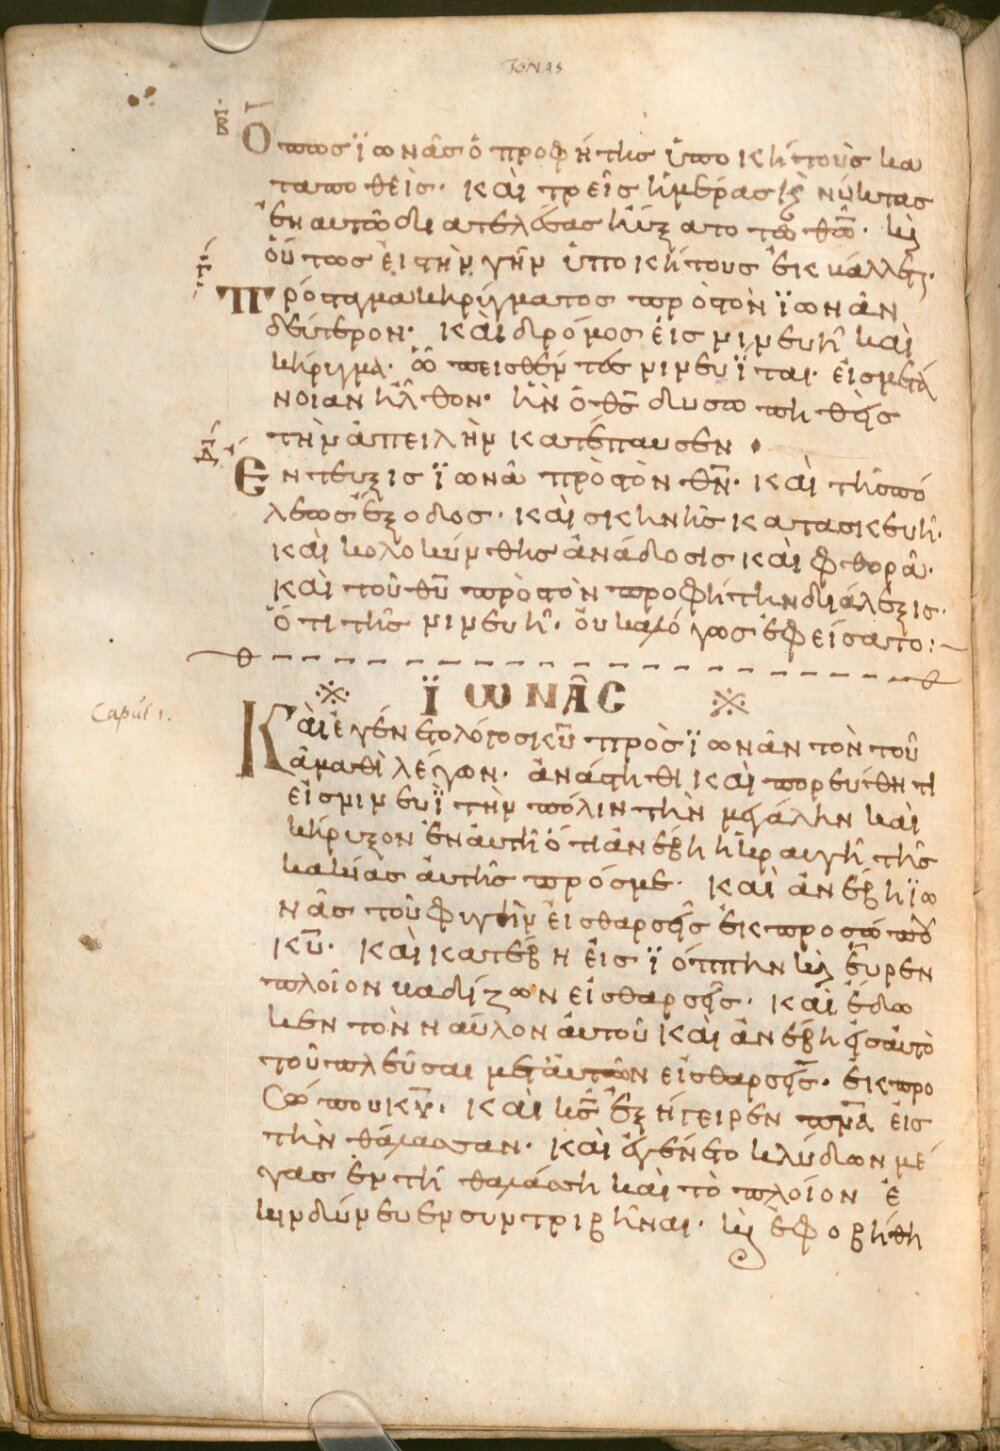 JONAS
Β Ὅπως ἰωνᾶς ὁ προφήτης ὑπὸ κήτους κα
ταποθείς· καὶ τρεῖς ἡμέρας κ(αὶ) νύκτας
ἐν αυτῶ διατελέσας ηὔξατο τῶ θῶ· κ(αὶ)
οὕτως ἐι τὴν γῆν ὑπο κήτους
Γ Πρόσταγμα κηρύγματος πρὸς τὸν ϊωνᾶν
δεύτερον· Καὶ δρόμος εἰς νινευῆ καὶ
κήρυγμα· ὧ πεισθέντες νινευΐται· εἰς μετά
νοιαν ἦλθον· ἣν ὁ θς δυσωπηθεὶς
τὴν ἀπειλὴν κατέπαυσεν·
Δ Ἔντευξις ϊωνᾶ πρὸς τὸν θν· καὶ τῆς πό
λεως ἔξοδος· καὶ σκηνῆς κατασκευή·
καὶ κολοκύνθης ἀνάδοσις καὶ φθορά·
καὶ τοῦ θυ πρὸς τὸν προφήτην διάλεξις·
ὅτι τῆς νινευῆ· οὐκ ἀλόγως ἐφείσατο:
ΪΩΝΑϹ
Caput 1.
Καὶ ἐγένετο λόγος κυ πρὸς ϊωνᾶν τὸν τοῦ
ἀμαθὶ λέγων· ἀνάστηθι καὶ πορεύθητι
εἰς νινευῒ τὴν πόλιν τὴν μεγάλην καὶ
κήρυξον ἐν ἀυτῆ ὅτι ἀνέβη ἡ κραυγὴ τῆς
κακίας ἀυτῆς πρός με· καὶ ἀνέβη ϊω
νᾶς τοῦ φυγεῖν εἰς θαρσεῖς ἐκ προσώπου
κυ· καὶ κατέβη εἰς ϊόππην κ(αὶ) εὗρεν
πλοῖον βαδίζων εἰς θαρσεῖς· καὶ ἔδω
κεν τὸν ναῦλον ἀυτοῦ καὶ ἀνέβη εἰς ἀυτὸ
τοῦ πλεῦσαι μετ᾽ ἀυτῶν εἰς θαρσεῖς· ἐκ προ
σώπου κυ· καὶ κς ἐξήγειρεν πνα εἰς
τὴν θάλασσαν· καὶ ἐγένετο κλύδων μέ
γας ἐν τῆ θαλάσση καὶ τὸ πλοῖον ἐ
κινδύνευεν συντριβῆναι· κ(αὶ) ἐφοβήθη